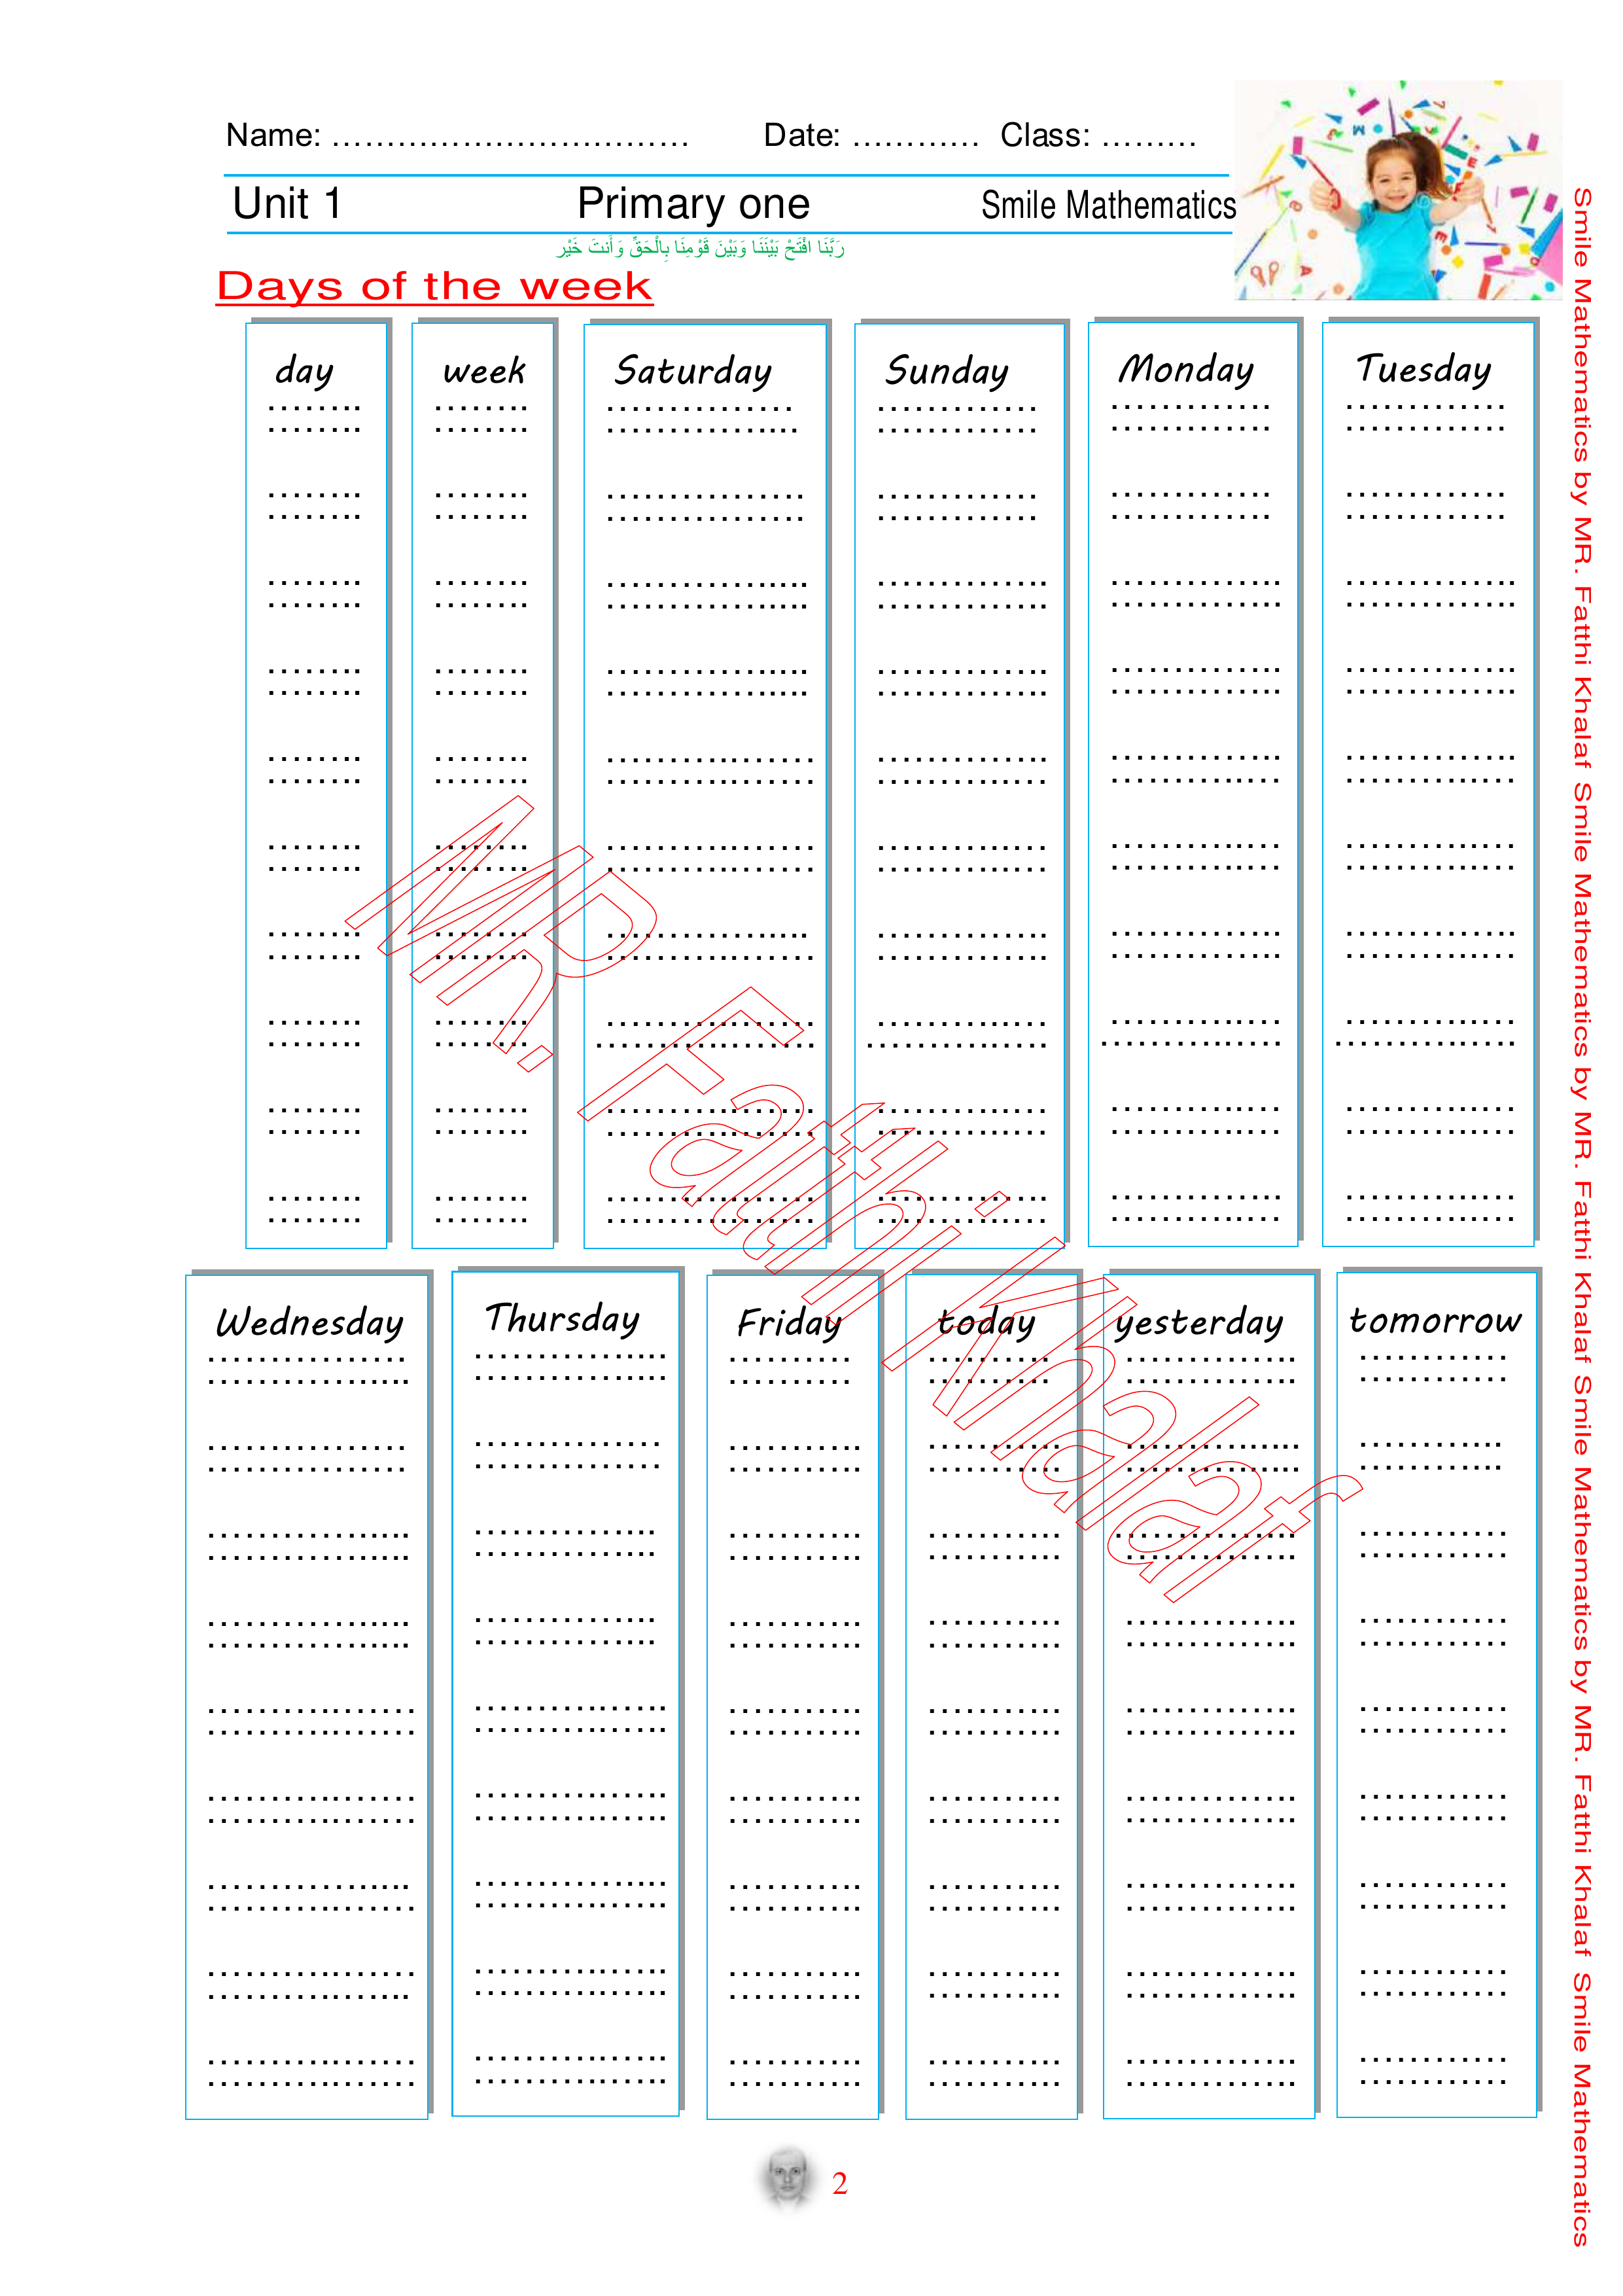 Name: ................................. Date: ............ Class: .........
Unit 1 Primary one Smile Mathematics
رَبَّنَا افْتَحْ بَيْنَنَا وَبَيْنَ قَوْمِنَا بِالْحَقِّ وَأَنتَ خَيْر
Days of the week
day week Saturday Sunday Monday Tuesday
Wednesday Thursday Friday today yesterday tomorrow
MR. Fatthi Khalaf
2
Smile Mathematics by MR. Fatthi Khalaf Smile Mathematics by MR. Fatthi Khalaf Smile Mathematics by MR. Fatthi Khalaf Smile Mathematics